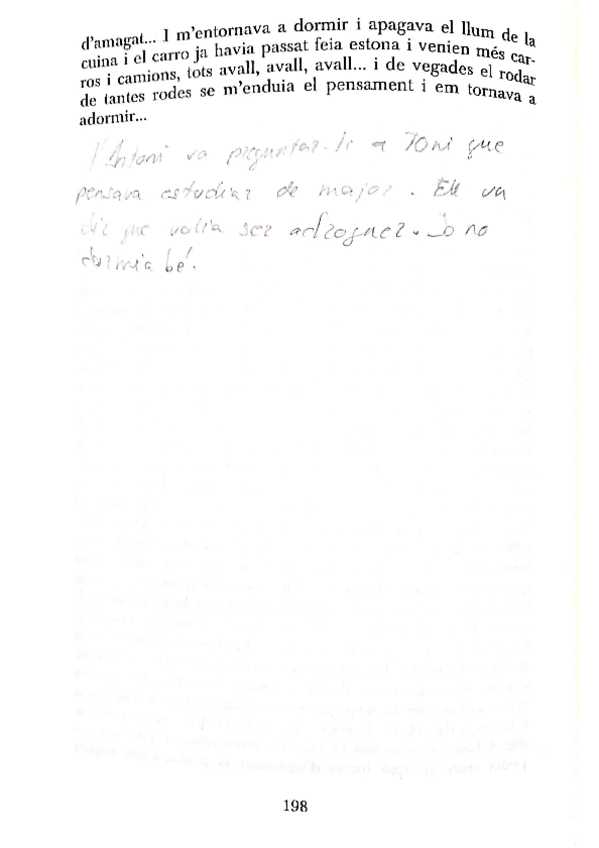 d'amagat... I m'entornava a dormir i apagava el llum de la
cuina i el carro ja havia passat feia estona i venien més car-
ros i camions, tots avall, avall, avall... i de vegades el rodar
de tantes rodes se m'enduia el pensament i em tornava a
adormir...
l'Antoni va preguntar-li a Toni que
pensava estudiar de major. Ell va
dir que volia ser adroguer. Jo no
dormia bé.
198